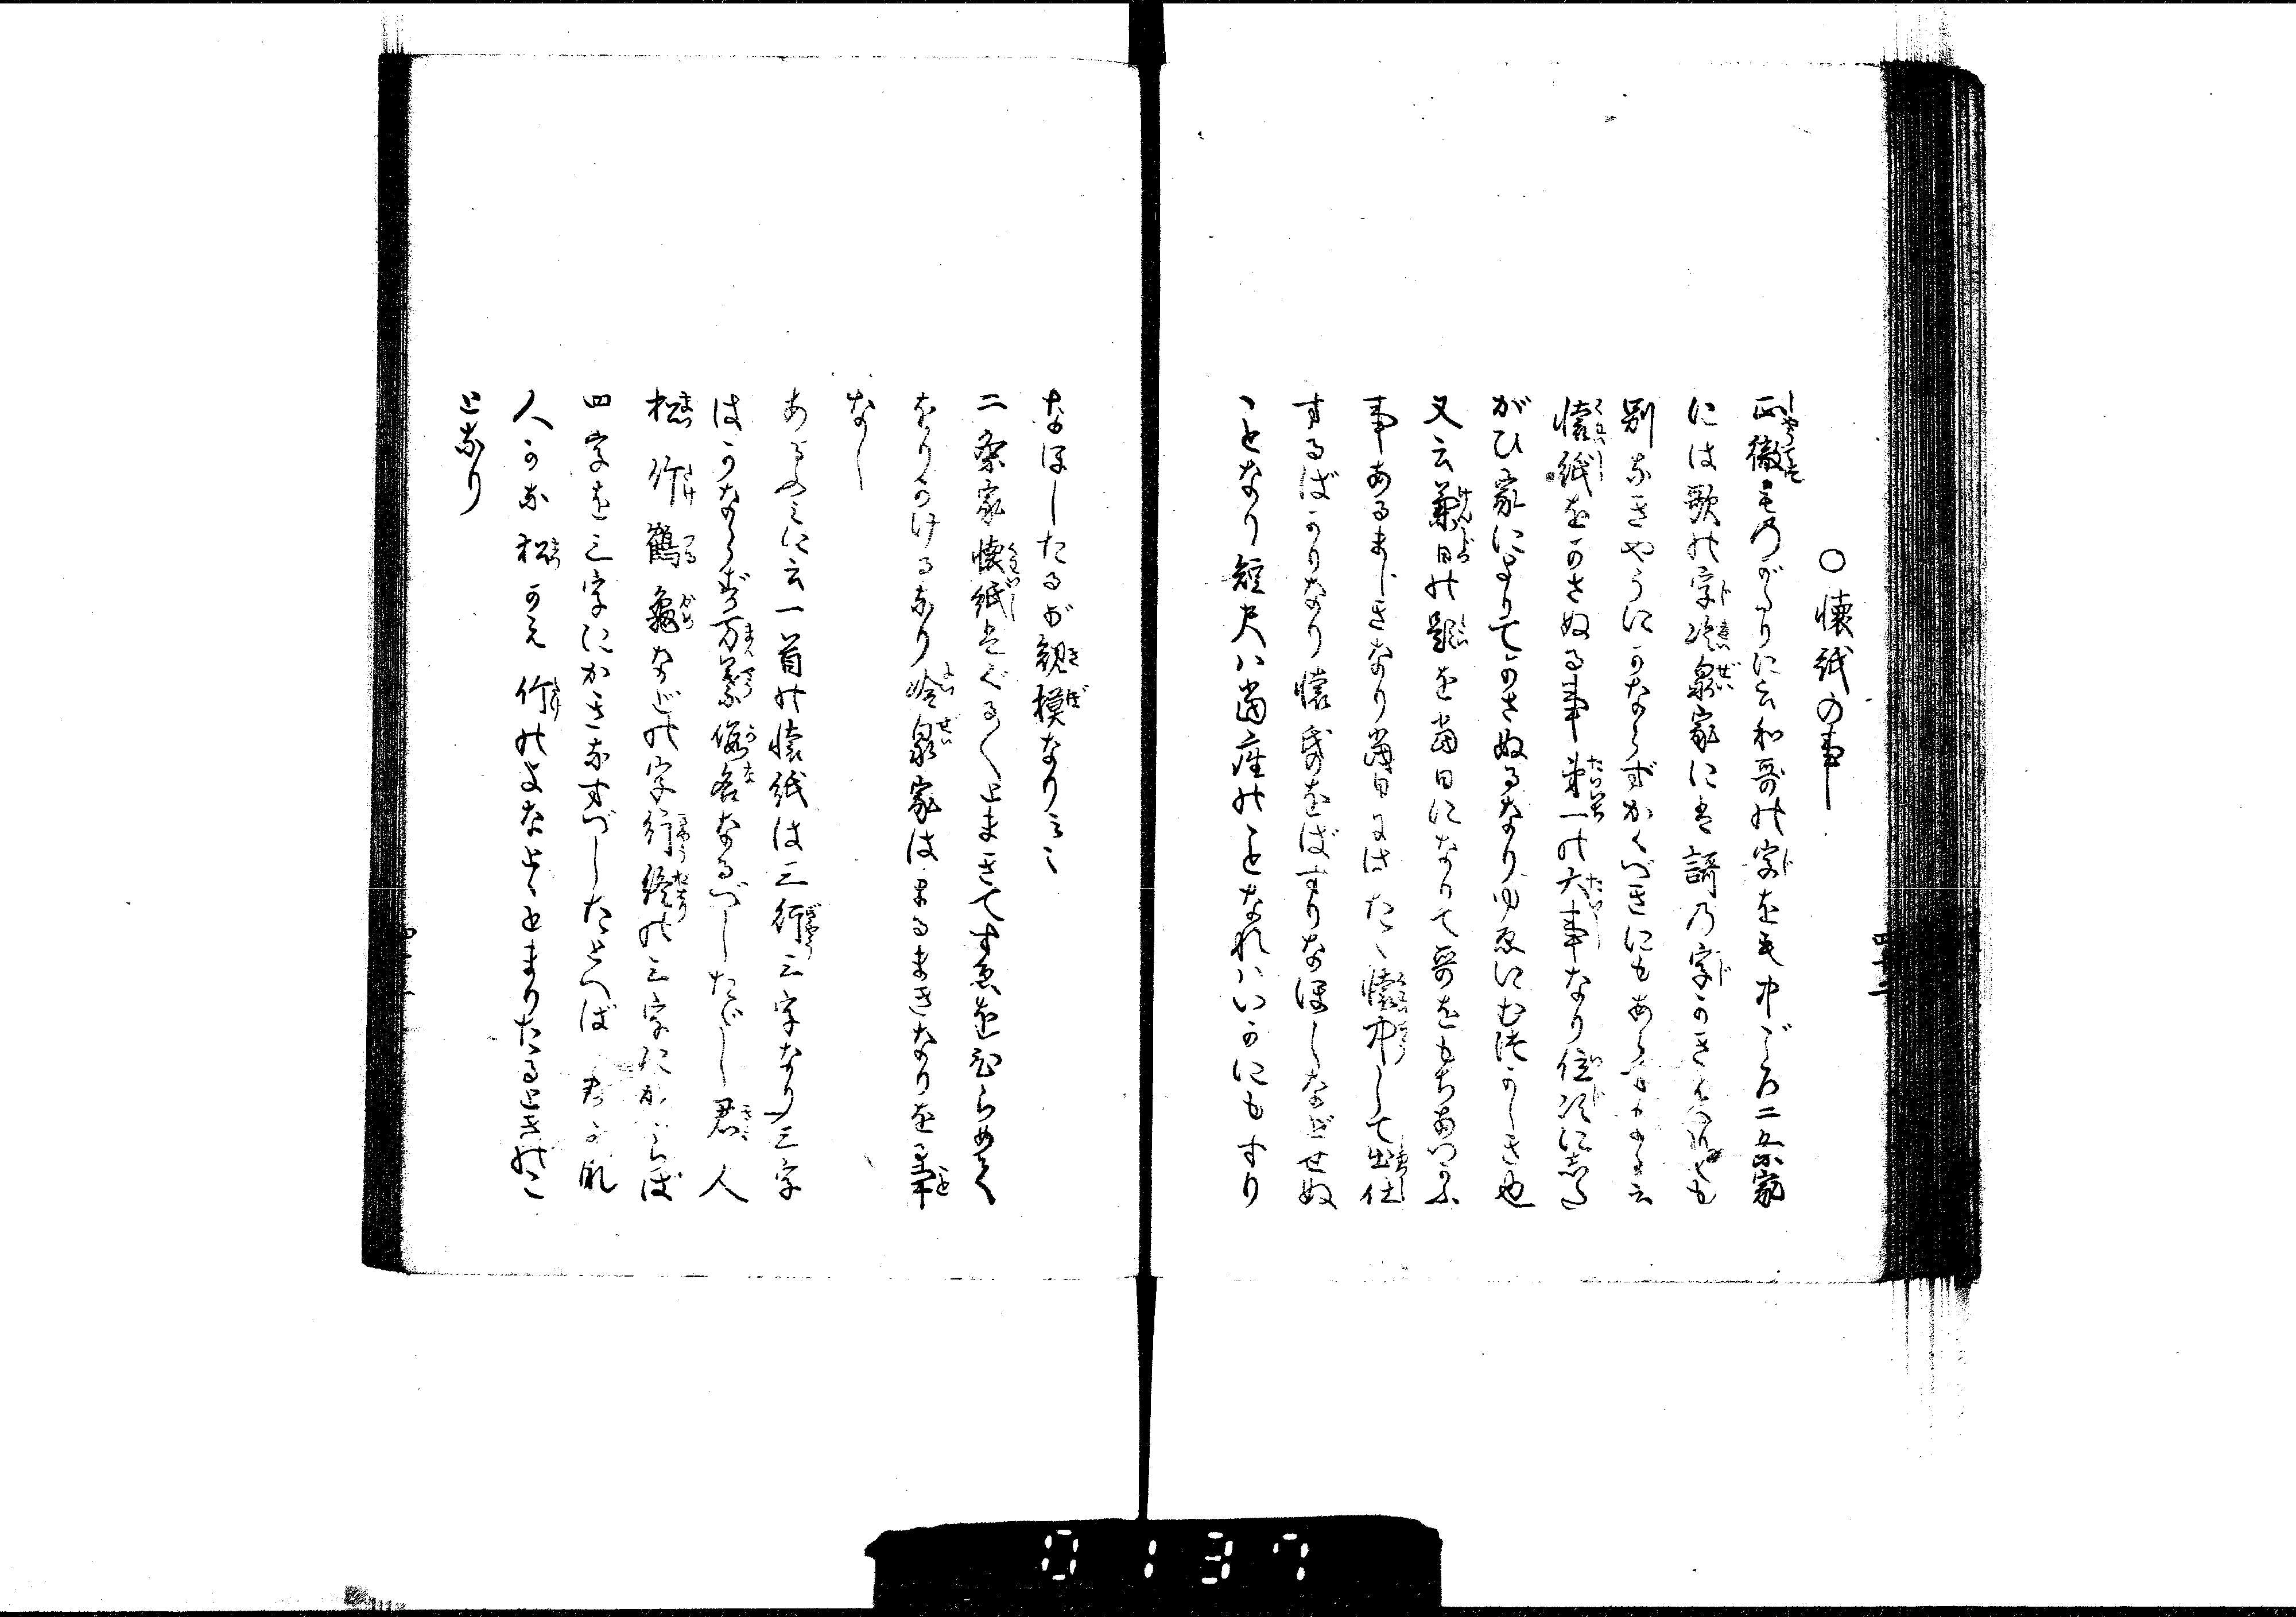 ○懐紙の事
正徹ものがたりに云和哥の字を毛中ごろ二条家
には歌の字冷泉家には謌の字かき
別なきやうにかならずかくべきにもあらず又云
懐紙をかさぬる事第一の大事なり位次にした
がひ家によりてかさぬるなりゆゑにむつかしき也
又云兼日の題を当日になりて哥をもちあつかふ
事あるまじきなり当日にはたゝ懐中して出仕
するばかりなり懐紙をばすりなほしなどせぬ
ことなり短尺ハ当座のことなれハいかにもすり
なほしたるが規模なり云々
二条家懐紙をぐる〳〵とまきてすゑをひらめて
をりかけるなり冷泉家はまるまきなりをる事
なし
一首の懐紙は三行三字なり三字
はかならず万葉仮名なるべしたゞし君人
松竹鶴亀などの字行終の三字にかゝらば
四字を三字にかきなすべしたとへば
人かな松かえ竹のよなとゝとまりたるときのこ
となり
0137